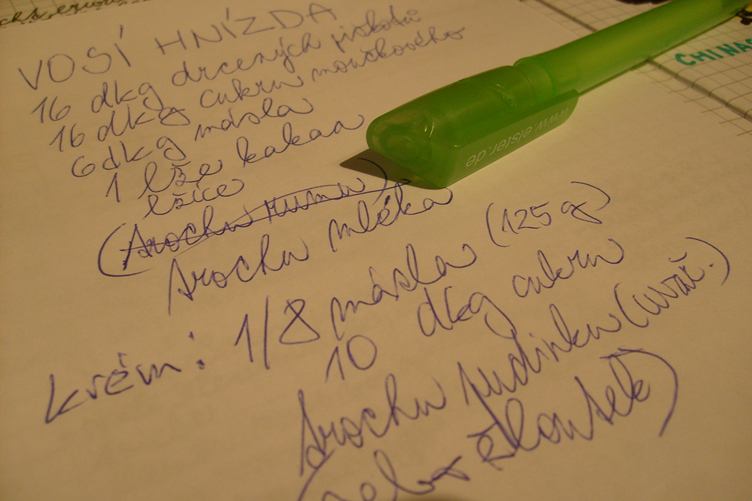 VOSÍ HNÍZDA
16 dkg drcených piškotů
16 dkg cukru moučkového
6 dkg másla
1 lže kakaa
lžíce
(trochu rumu)
trochu mléka
krém: 1/8 másla (125 g)
10 dkg cukru
trochu pudinku (uvař.)
(nebo žloutek)
www.elster.de
CHINAS